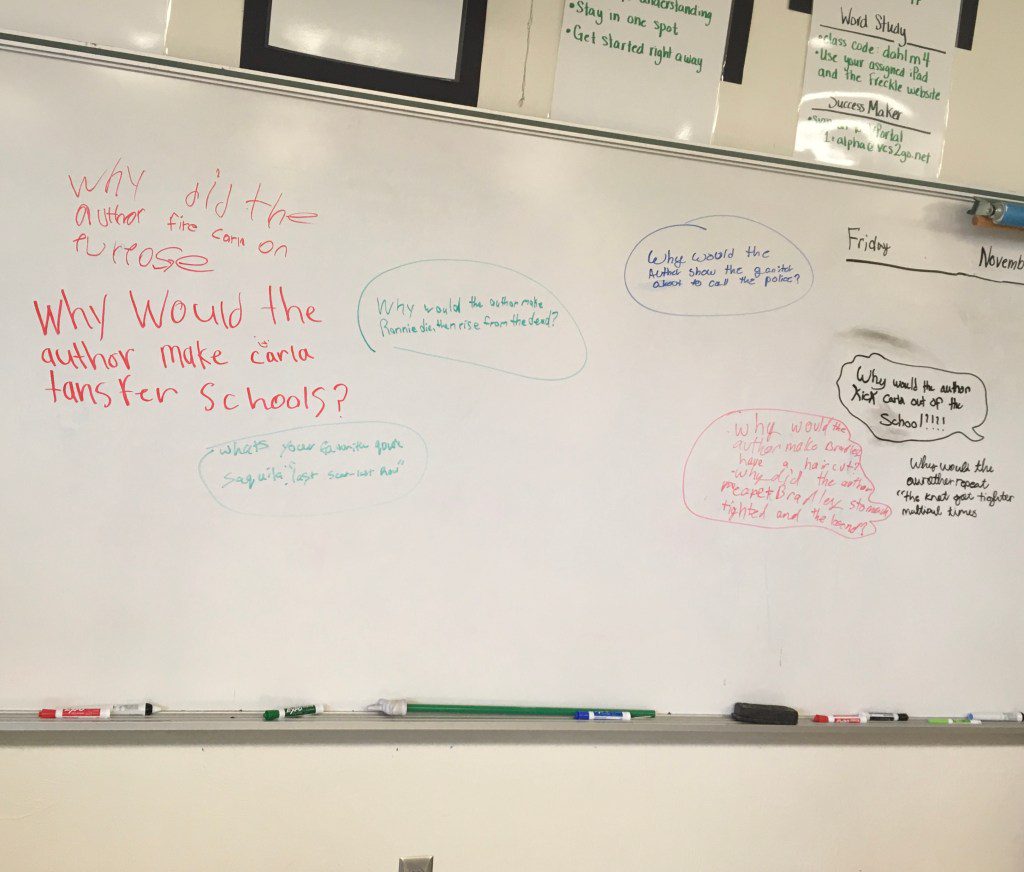 understanding
•Stay in one spot
•Get started right away
Word Study
•class code: dahlm4
•Use your assigned iPad
and the Freckle website
Success Maker
Portal
1.alpha@vcs2go.net
Why did the
author fire carla on
Purpose
Why Would the
author make carla
tansfer Schools?
Why would the author make
Ronnie die, then rise from the dead?
Why would the
Author show the
about to call the police?
Friday
Novemb
Why would the author
Kick Carla out of the
School!?!!
-Why would the
author make Bradley
have a haircut?
-Why did the author
Bradley stomach
tighted and the
Why would the
repeat
"the knot got tighter
times
whats your
last seat-last row"